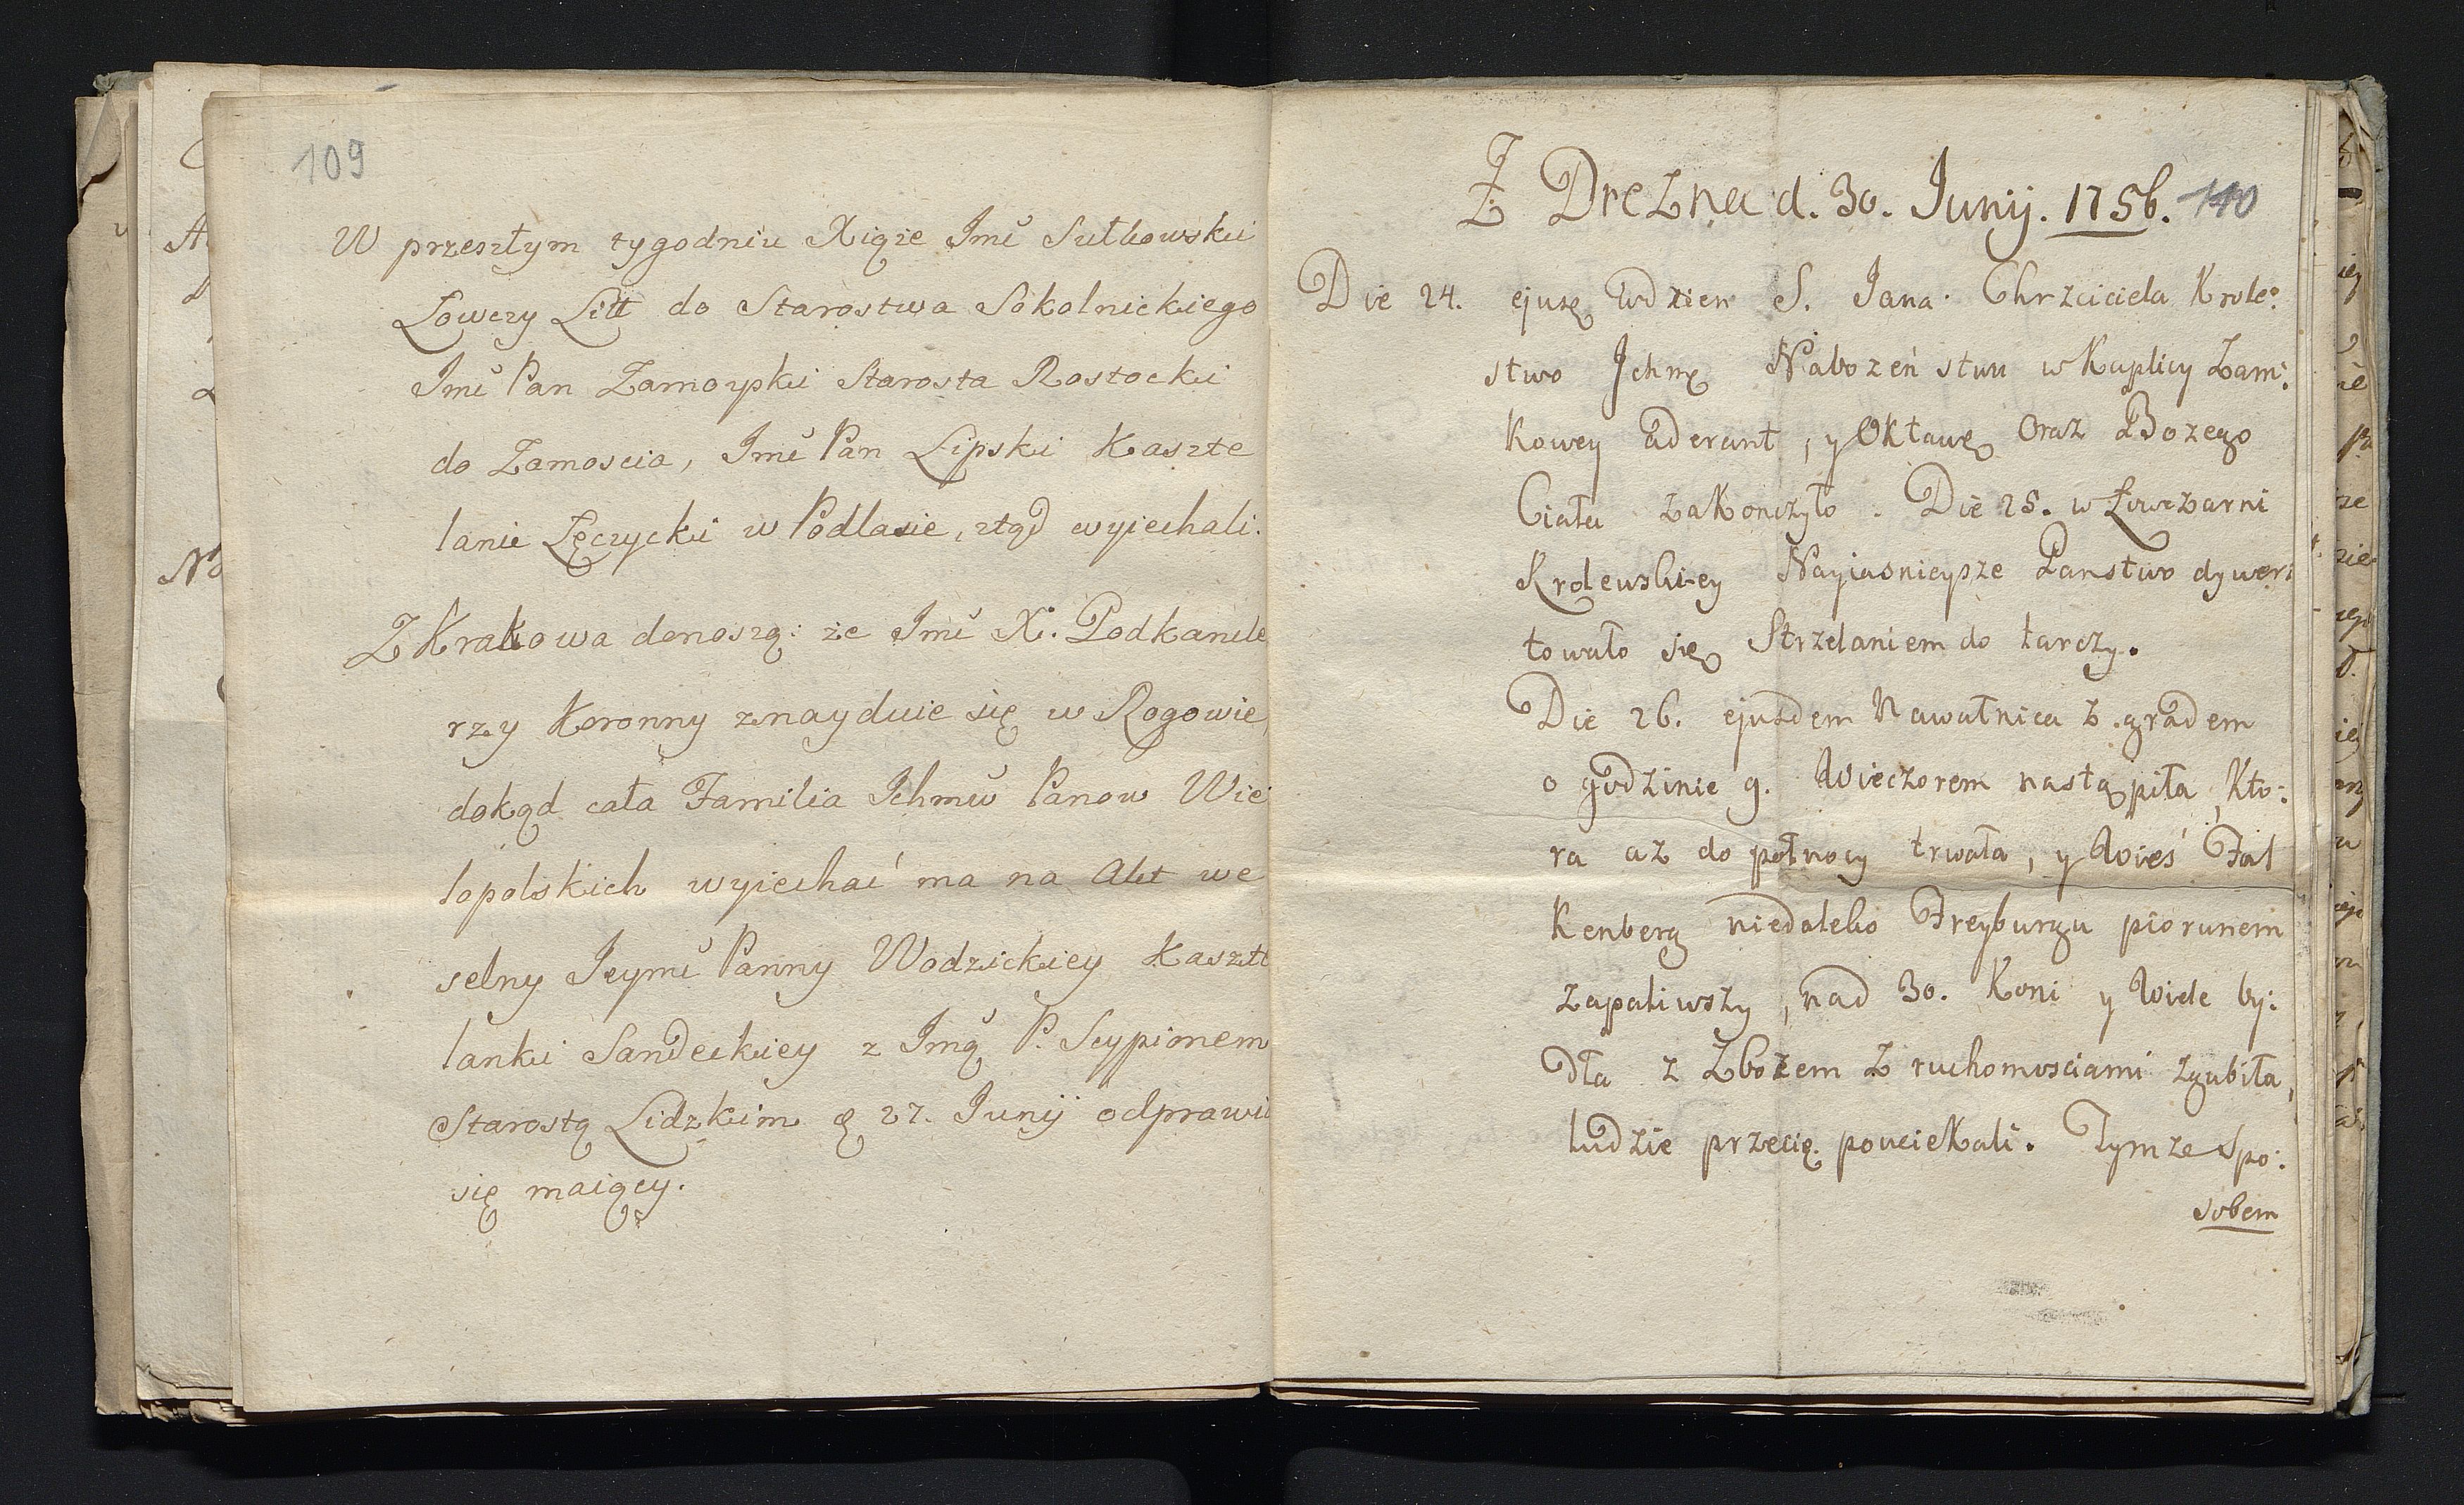 109
W przeszłym tygodniu Xiąże Imć Sułkowski
Łowczy Litt do Starostwa Sokolnickiego
Imć Pan Zamoyski Starosta Rostocki
do Zamoscia, Imć Pan Lipski Kaszte
lanic Łęczycki w Podlasie, ztąd wyiechali.
Z Krakowa donoszą: że Imć X. Podkancle
rzy Koronny znayduie się w Rogowie,
dokąd cała Familia Ichmć Panow Wie
lopolskich wyiechać ma na Akt we
selny Jeymć Panny Wodzickiey Kaszte
lanki Sandeckiey z Imą P. Scypionem
Starostą Lidzkim 27. Junij odprawić
się maiący.
Z Drezna d. 30. Junij. 1756. 110
Die 24. ejusd wdzien S. Jana Chrzciciela Krole:
stwo Ichm Nabożeństwu w Kaplicy Zam:
kowey aderant, y Oktawę Oraz Bozego
Ciała zakonczyło. Die 25. w Łowczarni
Krolewskiey Nayiasnieysze Panstwo dywer
towało się Strzelaniem do tarczy.
Die 26. ejusdem Nawałnica z gradem
o godzinie 9. Wieczorem nastąpiła, Kto:
ra aż do połnocy trwała, y Wieś Fal
kenberg niedaleko Freyburgu piorunem
zapaliwszy, nad 30. Koni y Wiele by:
dła z Zbożem z ruchomosciami zgubiła,
ludzie przecię pouciekali. Tymze Spo:
sobem